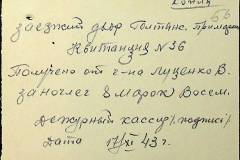 Копия
53
заезжий двор Полтавс. примария
Квитанция № 36
Получено от г-на Луценко В.
за ночлег 8 марок Восем.
Дежурный кассир /подпись/
Дата 17/XI 43 г.